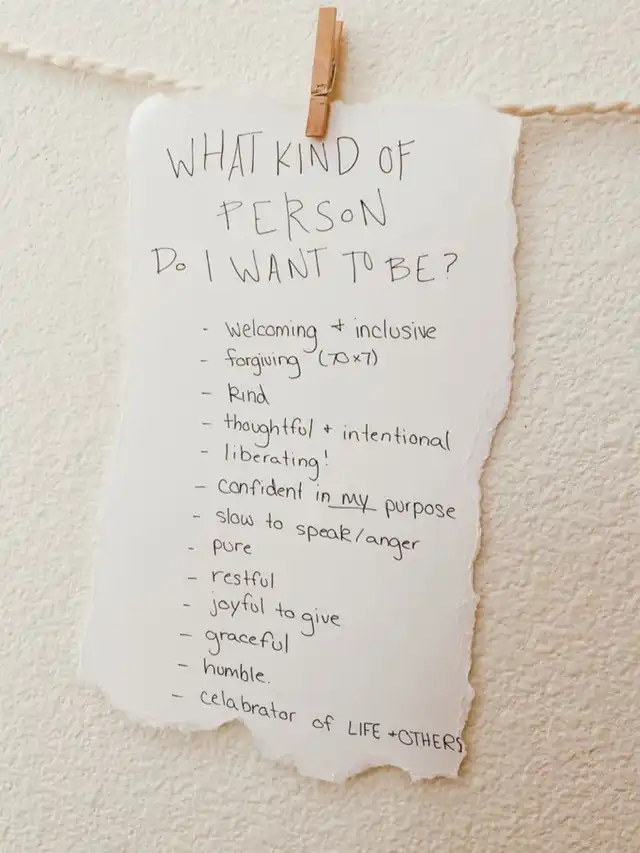 WHAT KIND OF
PERSON
Do I WANT TO BE?
- welcoming + inclusive
- forgiving (70x7)
- kind
- thoughtful + intentional
- liberating!
- confident in my purpose
- slow to speak/anger
- pure
- restful
- joyful to give
- graceful
- humble.
- celabrator of LIFE + OTHERS